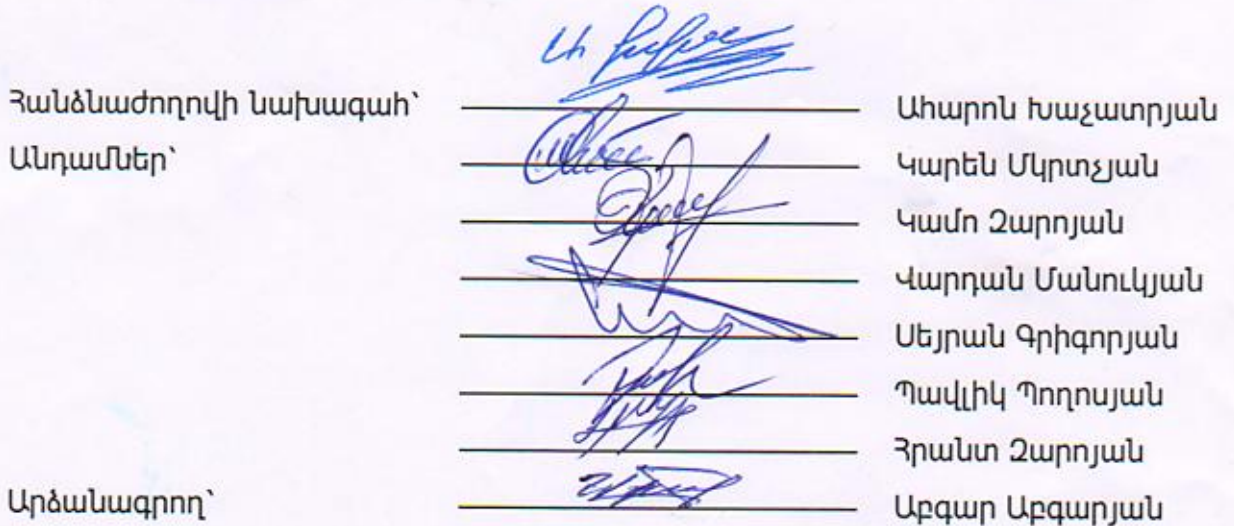 Հանձնաժողովի նախագահ՝ Ահարոն Խաչատրյան
Անդամներ՝ Կարեն Մկրտչյան
Կամո Զարոյան
Վարդան Մանուկյան
Սեյրան Գրիգորյան
Պավլիկ Պողոսյան
Հրանտ Զարոյան
Արձանագրող՝ Աբգար Աբգարյան